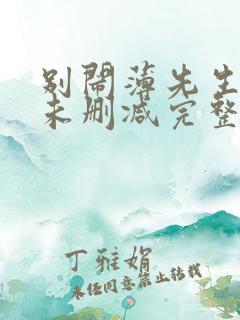 别闹薄先生
未删减完整
丁雅娟
未经同意禁止转载